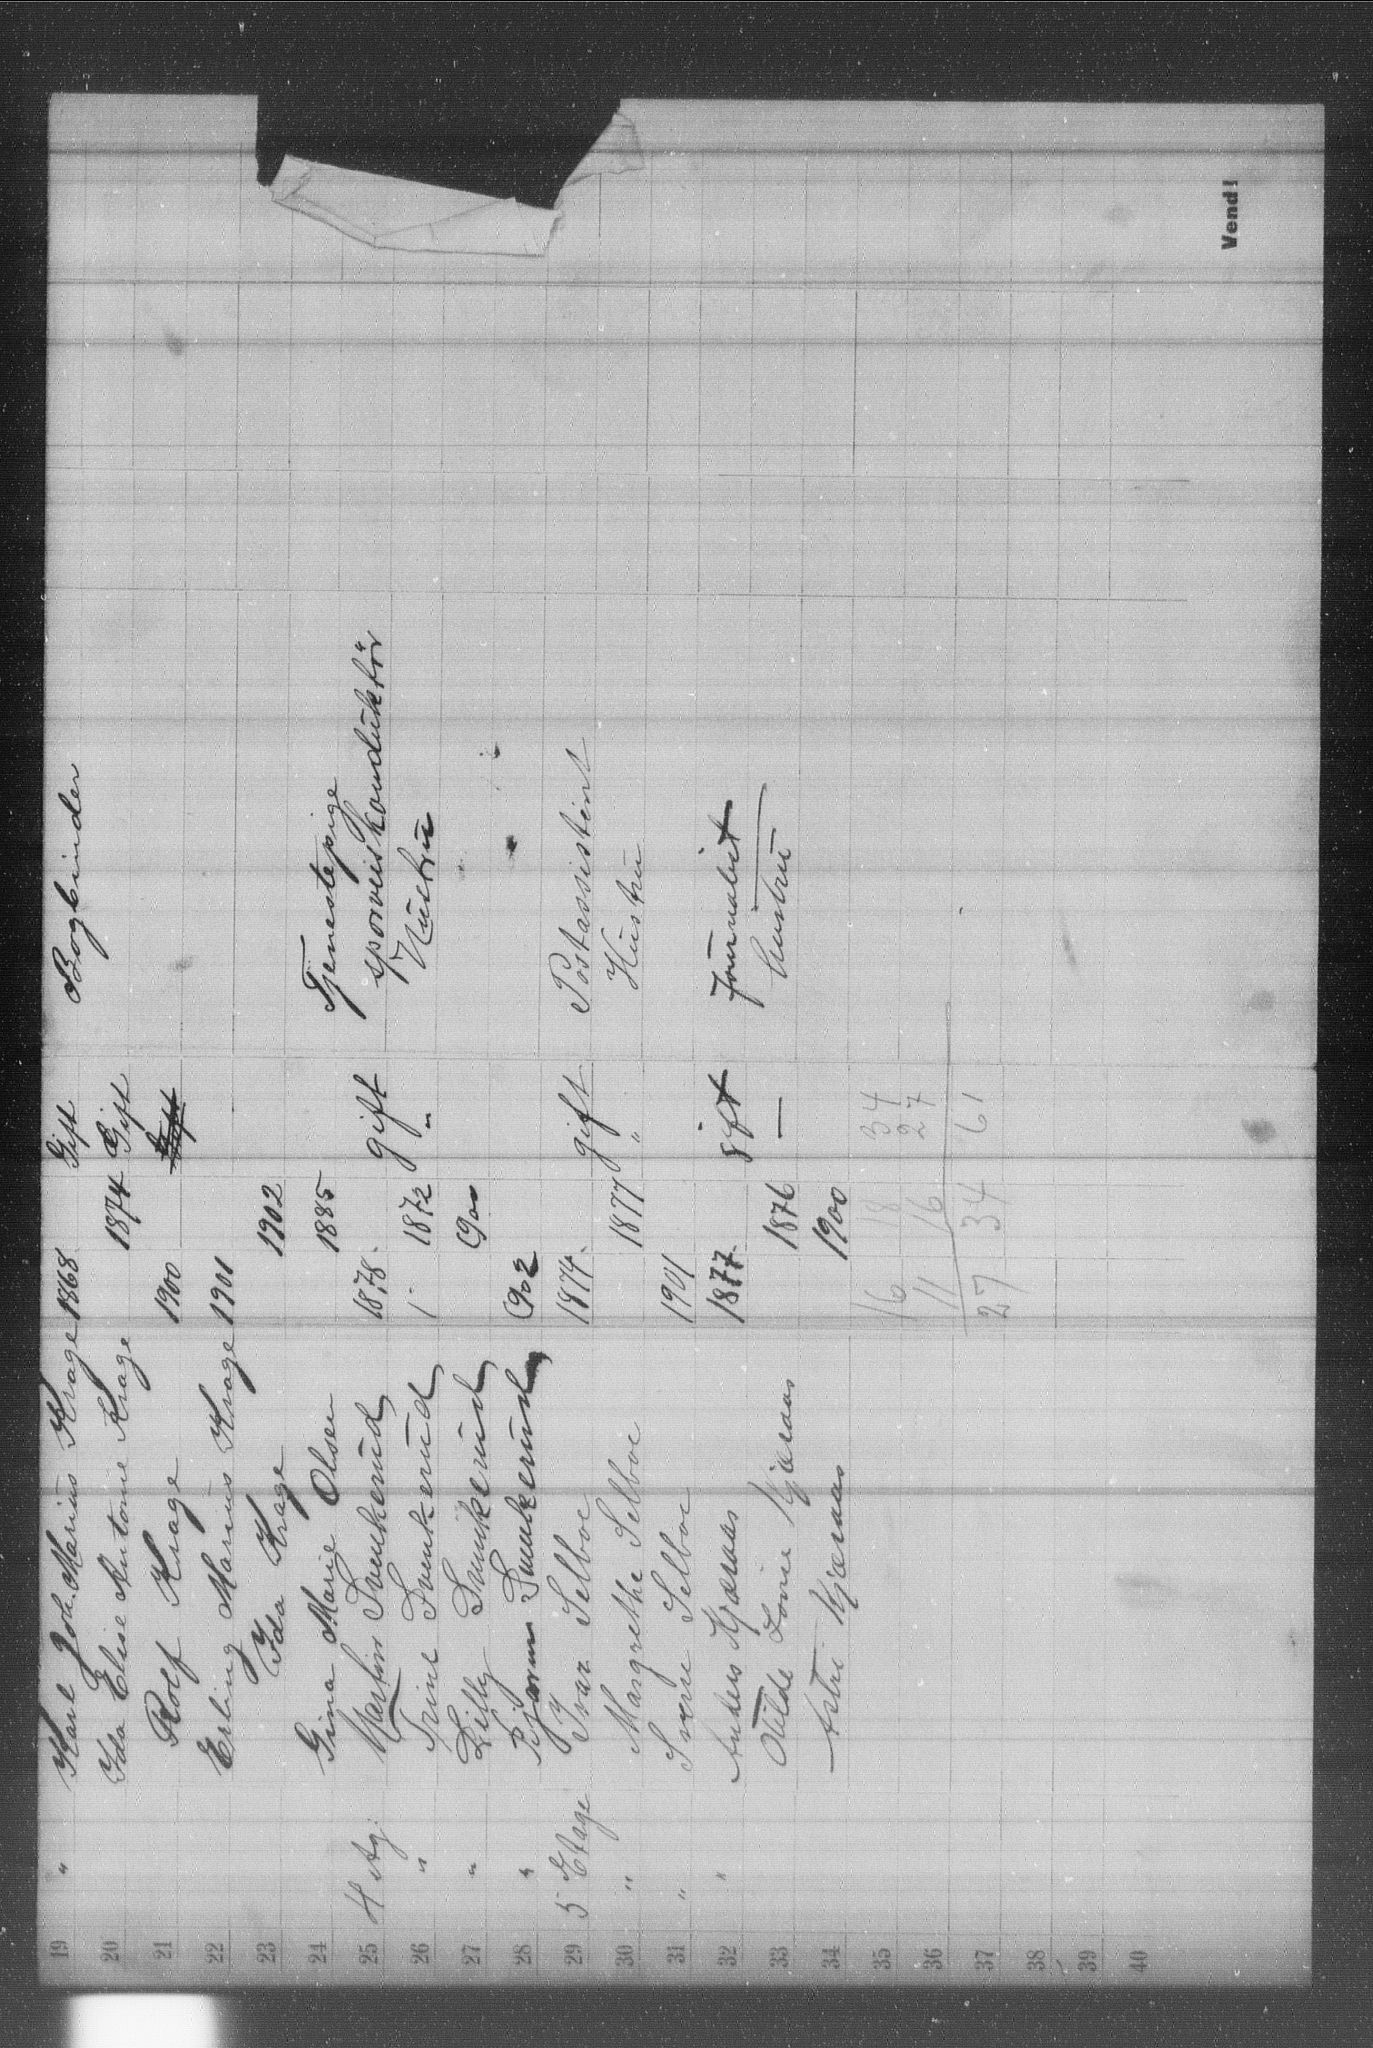 19 " Karl Joh. Marius Krage 1868 Gift Bogbinder
20 Ida Elise Antonie Krage 1874 Gift
21 Rolf Krage 1900 Gift
22 Erling Marius Krage 1901
23 Ida Krage 1902
24 Gina Marie Olsen 1885 Tjenestepige
25 4 Etg: Martin Svenkerud 1878. gift sporveiskonduktör
26 " Trine Svenkerud 1872 " Hustru
27 " Lilly Svenkerud 900
28 " Bjarne Svenkerud 902
29 5 Etage Ivar Selboe 1874. gift Postassistent
30 " Margrethe Selboe 1877 " Hustru
31 " Sverre Selboe 1901
32 " Anders Kjæraas 1877. gift Journalist
33 Otilde Lovise Kjæraas 1876 — hustru
34 Astri Kjæraas 1900
35 16 18 34
36 11 16 27
37 27 34 61
38
39
40
Vend!